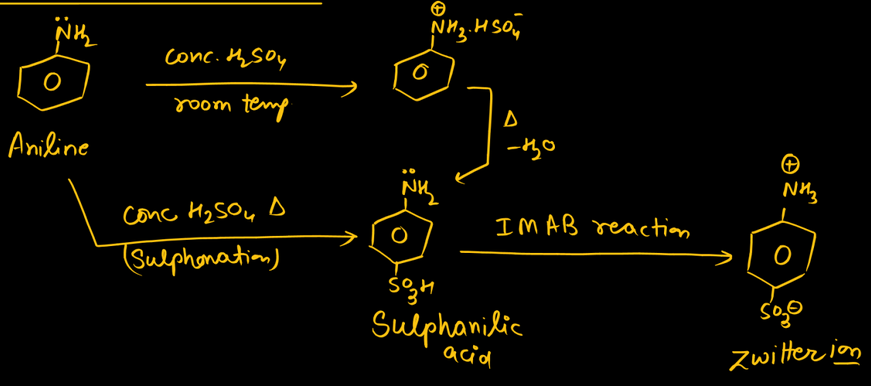 N̈H₂
Aniline
Conc. H₂SO₄
room temp
⊕
NH₃.HSO₄⁻
Δ
-H₂O
Conc H₂SO₄ Δ
(Sulphonation)
N̈H₂
SO₃H
Sulphanilic
acid
IMAB reaction
⊕
NH₃
SO₃⊖
Zwitter ion